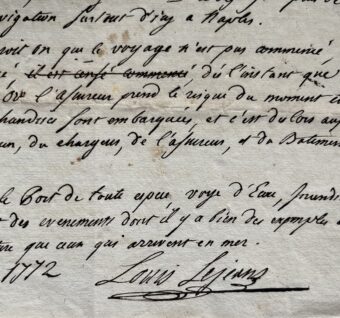 vigation surtout d'ici a Naples.
roit on que le voyage n'est pas commencé
é il est censé commencé dès l'instant que
Or l'assureur prend le risque du moment
chandises sont embarquées, et c'est du lors au
un, du chargeur, de l'assureur, et du Batimen
le Port de toute espece, voye d'Eau,
des evenements dont il y a bien des exemples
que ceux qui arrivent en mer.
1772 Louis Lejeans